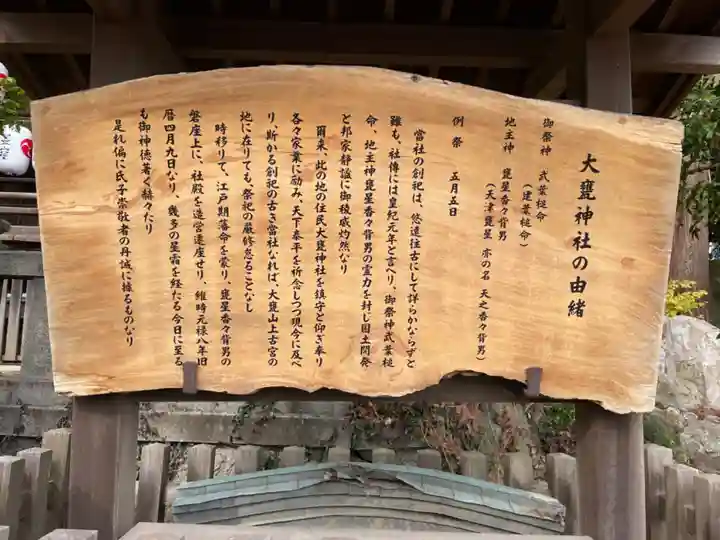 大甕神社の由緒
御祭神　武葉槌命
（建葉槌命）
地主神　甕星香々背男
（天津甕星　亦の名　天之香々背男）
例祭　五月五日
當社の創祀は、悠遠往古にして詳らかならずと
雖も、社傳には皇紀元年と言へり、御祭神武葉槌
命、地主神甕星香々背男の霊力を封じ国土開発
と邦家静謐に御稜威灼然なり
爾来、此の地の住民大甕神社を鎮守と仰ぎ奉り
各々家業に励み、天下泰平を祈念しつつ現今に及べ
り、斯かる創祀の古き當社なれば、大甕山上古宮の
地に在りても、祭祀の厳修怠ることなし
時移りて、江戸期藩命を蒙り、甕星香々背男の
磐座上に、社殿を造営遷座せり、維時元禄八年旧
暦四月九日なり、幾多の星霜を経たる今日に至る
も御神徳著く赫々たり
是れ偏に氏子崇敬者の丹誠に據るものなり